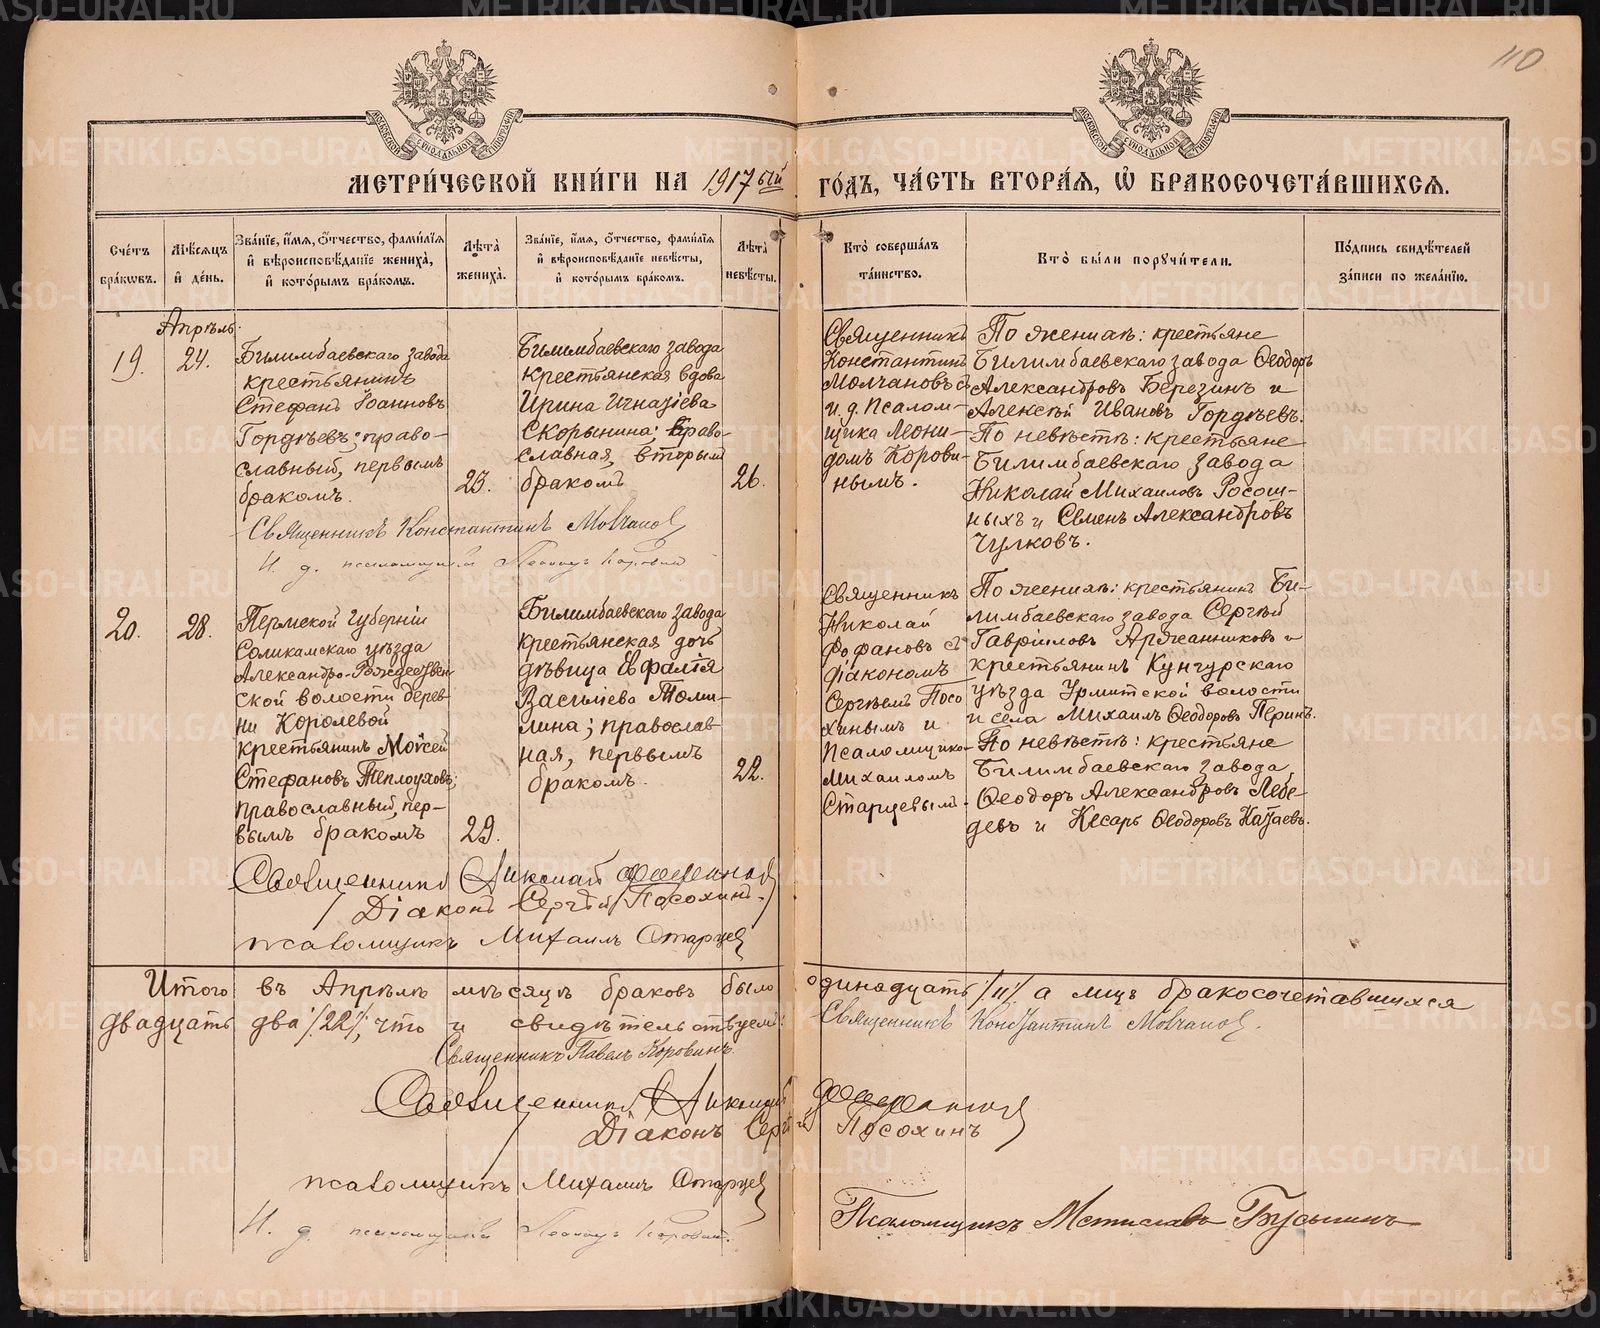 110
МОСКОВСКОЙ СѴНОДАЛЬНОЙ ТИПОГРАФІИ
МОСКОВСКОЙ СѴНОДАЛЬНОЙ ТИПОГРАФІИ
МЕТРИ́ЧЕСКОЙ КНИ́ГИ НА 1917ый ГО́ДЪ, ЧА́СТЬ ВТОРА́Я, Ѽ БРАКОСОЧЕТА́ВШИХСЯ.
Сче́тъ бра́кѡвъ.
Мѣ́сяцъ и҆ де́нь.
Зва́нїе, и҆́мя, ѻ҆́тчество, фами́лїя и҆ вѣроисповѣ́данїе жениха̀, и҆ кото́рымъ бра́комъ.
Лѣта̀ жениха̀.
Зва́нїе, и҆́мя, ѻ҆́тчество, фами́лїя и҆ вѣроисповѣ́данїе невѣ́сты, и҆ кото́рымъ бра́комъ.
Лѣта̀ невѣ́сты.
Кто̀ соверша́лъ та́инство.
Кто̀ бы́ли поручи́тели.
По́дпись свидѣ́телей за́писи по жела́нїю.
Апрѣль.
19.
24.
Билимбаевскаго завода
крестьянинъ
Стефанъ Іоанновъ
Гордѣевъ; право-
славный, первымъ
бракомъ.
23.
Билимбаевскаго завода
крестьянская вдова
Ирина Игнатіева
Скорынина; право-
славная, вторым
бракомъ
26.
Священникъ
Константинъ
Молчановъ съ
и. д. псалом-
щика Леони-
домъ Корови-
нымъ.
По женихѣ: крестьяне
Билимбаевскаго завода Ѳеодоръ
Александровъ Березинъ и
Алексѣй Ивановъ Гордѣевъ.
По невѣстѣ: крестьяне
Билимбаевскаго завода
Николай Михаиловъ Росош-
ныхъ и Семенъ Александровъ
Чулковъ.
Священникъ Константинъ Молчановъ
И. д. псаломщика Леонидъ Коровинъ
20.
28.
Пермской губерніи
Соликамскаго уѣзда
Александро-Рождествен-
ской волости дерев-
ни Королевой
крестьянинъ Моѵсей
Стефановъ Теплоуховъ;
православный, пер-
вымъ бракомъ
29.
Билимбаевскаго завода
крестьянская дочь
дѣвица Евфалія
Васильева Томи-
лина; православ-
ная, первымъ
бракомъ.
22.
Священникъ
Николай
Фофановъ съ
діакономъ
Сергѣемъ Посо
хинымъ и
Псаломщико-
Михаиломъ
Старцевымъ.
По женихѣ: крестьянинъ Би-
лимбаевскаго завода Сергѣй
Гавріиловъ Аржанниковъ и
крестьянинъ Кунгурскаго
уѣзда Урмитской волости
и села Михаилъ Ѳеодоровъ Перинъ.
По невѣстѣ: крестьяне
Билимбаевскаго завода
Ѳеодоръ Александровъ Лебе-
девъ и Кесарь Ѳеодоровъ Катаевъ.
Священникъ Николай Фофановъ
Діаконъ Сергѣй Посохинъ.
псаломщикъ Михаилъ Старцев
Итого въ Апрѣлѣ мѣсяцѣ браковъ было одинадцать /11/ а лицъ бракосочетавшихся
двадцать два /22/, что и свидѣтельствуемъ:
Священникъ Константинъ Молчановъ.
Священникъ Павелъ Коровинъ.
Священникъ Николай Фофановъ
Діаконъ Сергѣй Посохинъ
псаломщикъ Михаилъ Старцев
И. д. псаломщика Леонидъ Коровин.
Псаломщикъ Мстиславъ
METRIKI.GASO-URAL.RU